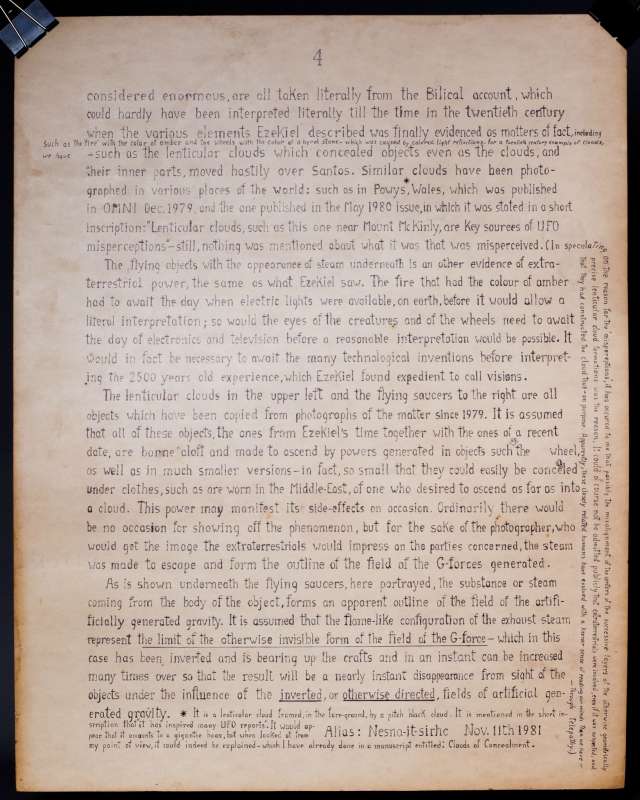 4
considered enormous, are all taken literally from the Bilical account, which
could hardly have been interpreted literally till the time in the twentieth century
when the various elements Ezekiel described was finally evidenced as matters of fact, including
such as the fire with the color of amber and the wheels with the color of a beryl stone - which was caused by colored light reflections. For a twentieth century example of clouds,
we have - such as the lenticular clouds which concealed objects even as the clouds, and
their inner parts, moved hastily over Santos. Similar clouds have been photo-
graphed in various places of the world: such as in Powys,* Wales, which was published
in OMNI Dec. 1979, and the one published in the May 1980 issue, in which it was stated in a short
inscription: "Lenticular clouds, such as this one near Mount McKinly, are Key sources of UFO
misperceptions" - still, nothing was mentioned about what it was that was misperceived. (In speculating
on the reason for the misperceptions, it has occured to me that possibly the misalignment of the centers of the successive layers of the otherwise geometrically
precise lenticular cloud formations was the reason. It could of course not be admitted publicly that extraterrestrials were involved, even if it was suspected, and
that they had constructed the cloud that way on purpose. Apparently, these closely related humans have evolved with a keener sense of reading our minds than we have -
- through Telepathy.)
The flying objects with the appearance of steam underneath is an other evidence of extra-
terrestrial power, the same as what Ezekiel saw. The fire that had the colour of amber
had to await the day when electric lights were available, on earth, before it would allow a
literal interpretation; so would the eyes of the creatures and of the wheels need to await
the day of electronics and television before a reasonable interpretation would be possible. It
would in fact be necessary to await the many technological inventions before interpret-
ing the 2500 years old experience, which Ezekiel found expedient to call visions.
The lenticular clouds in the upper left and the flying saucers to the right are all
objects which have been copied from photographs of the matter since 1979. It is assumed
that all of these objects, the ones from Ezekiel's time together with the ones of a recent
date, are borne aloft and made to ascend by powers generated in objects such as the wheel,
as well as in much smaller versions - in fact, so small that they could easily be concealed
under clothes, such as are worn in the Middle-East, of one who desired to ascend as far as into
a cloud. This power may manifest its side-effects on occasion. Ordinarily there would
be no occasion for showing off the phenomenon, but for the sake of the photographer, who
would get the image the extraterrestrials would impress on the parties concerned, the steam
was made to escape and form the outline of the field of the G-forces generated.
As is shown underneath the flying saucers, here portrayed, the substance or steam
coming from the body of the object, forms an apparent outline of the field of the artifi-
ficially generated gravity. It is assumed that the flame-like configuration of the exhaust steam
represent the limit of the otherwise invisible form of the field of the G-force - which in this
case has been inverted and is bearing up the crafts and in an instant can be increased
many times over so that the result will be a nearly instant disappearance from sight of the
objects under the influence of the inverted, or otherwise directed, fields of artificial gen-
erated gravity. * It is a lenticular cloud framed, in the fore-ground, by a pitch black cloud. It is mentioned in the short in-
scription that it has inspired many UFO reports. It would ap-
pear that it amounts to a gigantic hoax, but when looked at from
my point of view, it could indeed be explained - which I have already done in a manuscript entitled: Clouds of Concealment.
Alias: Nesna-it-sirhc Nov. 11th 1981